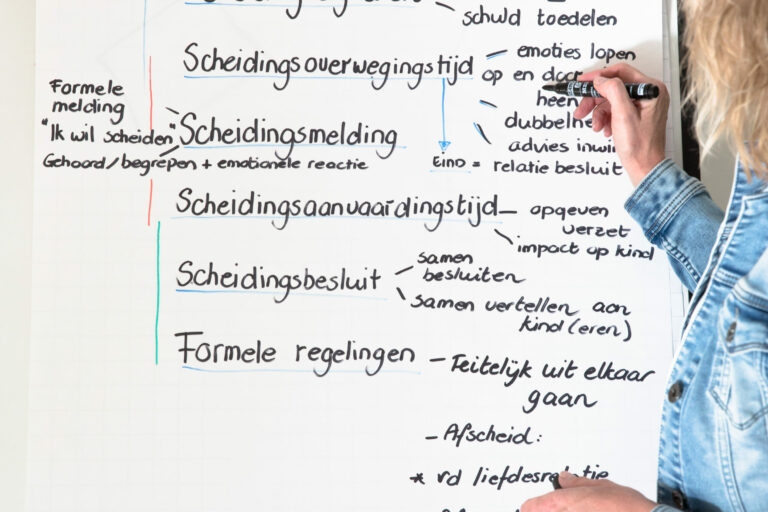 schuld toedelen
Scheidingsoverwegingstijd
emoties lopen
op en door
heen
dubbel
advies
Eind = relatie besluit
Formele
melding
"Ik wil scheiden"
Gehoord/begrepen + emotionele reactie
Scheidingsmelding
Scheidingsaanvaardingstijd
- opgeven
verzet
impact op kind
Scheidingsbesluit
samen
besluiten
samen vertellen aan
kind(eren)
Formele regelingen
- Feitelijk uit elkaar
gaan
- Afscheid:
* vd liefdesrelatie